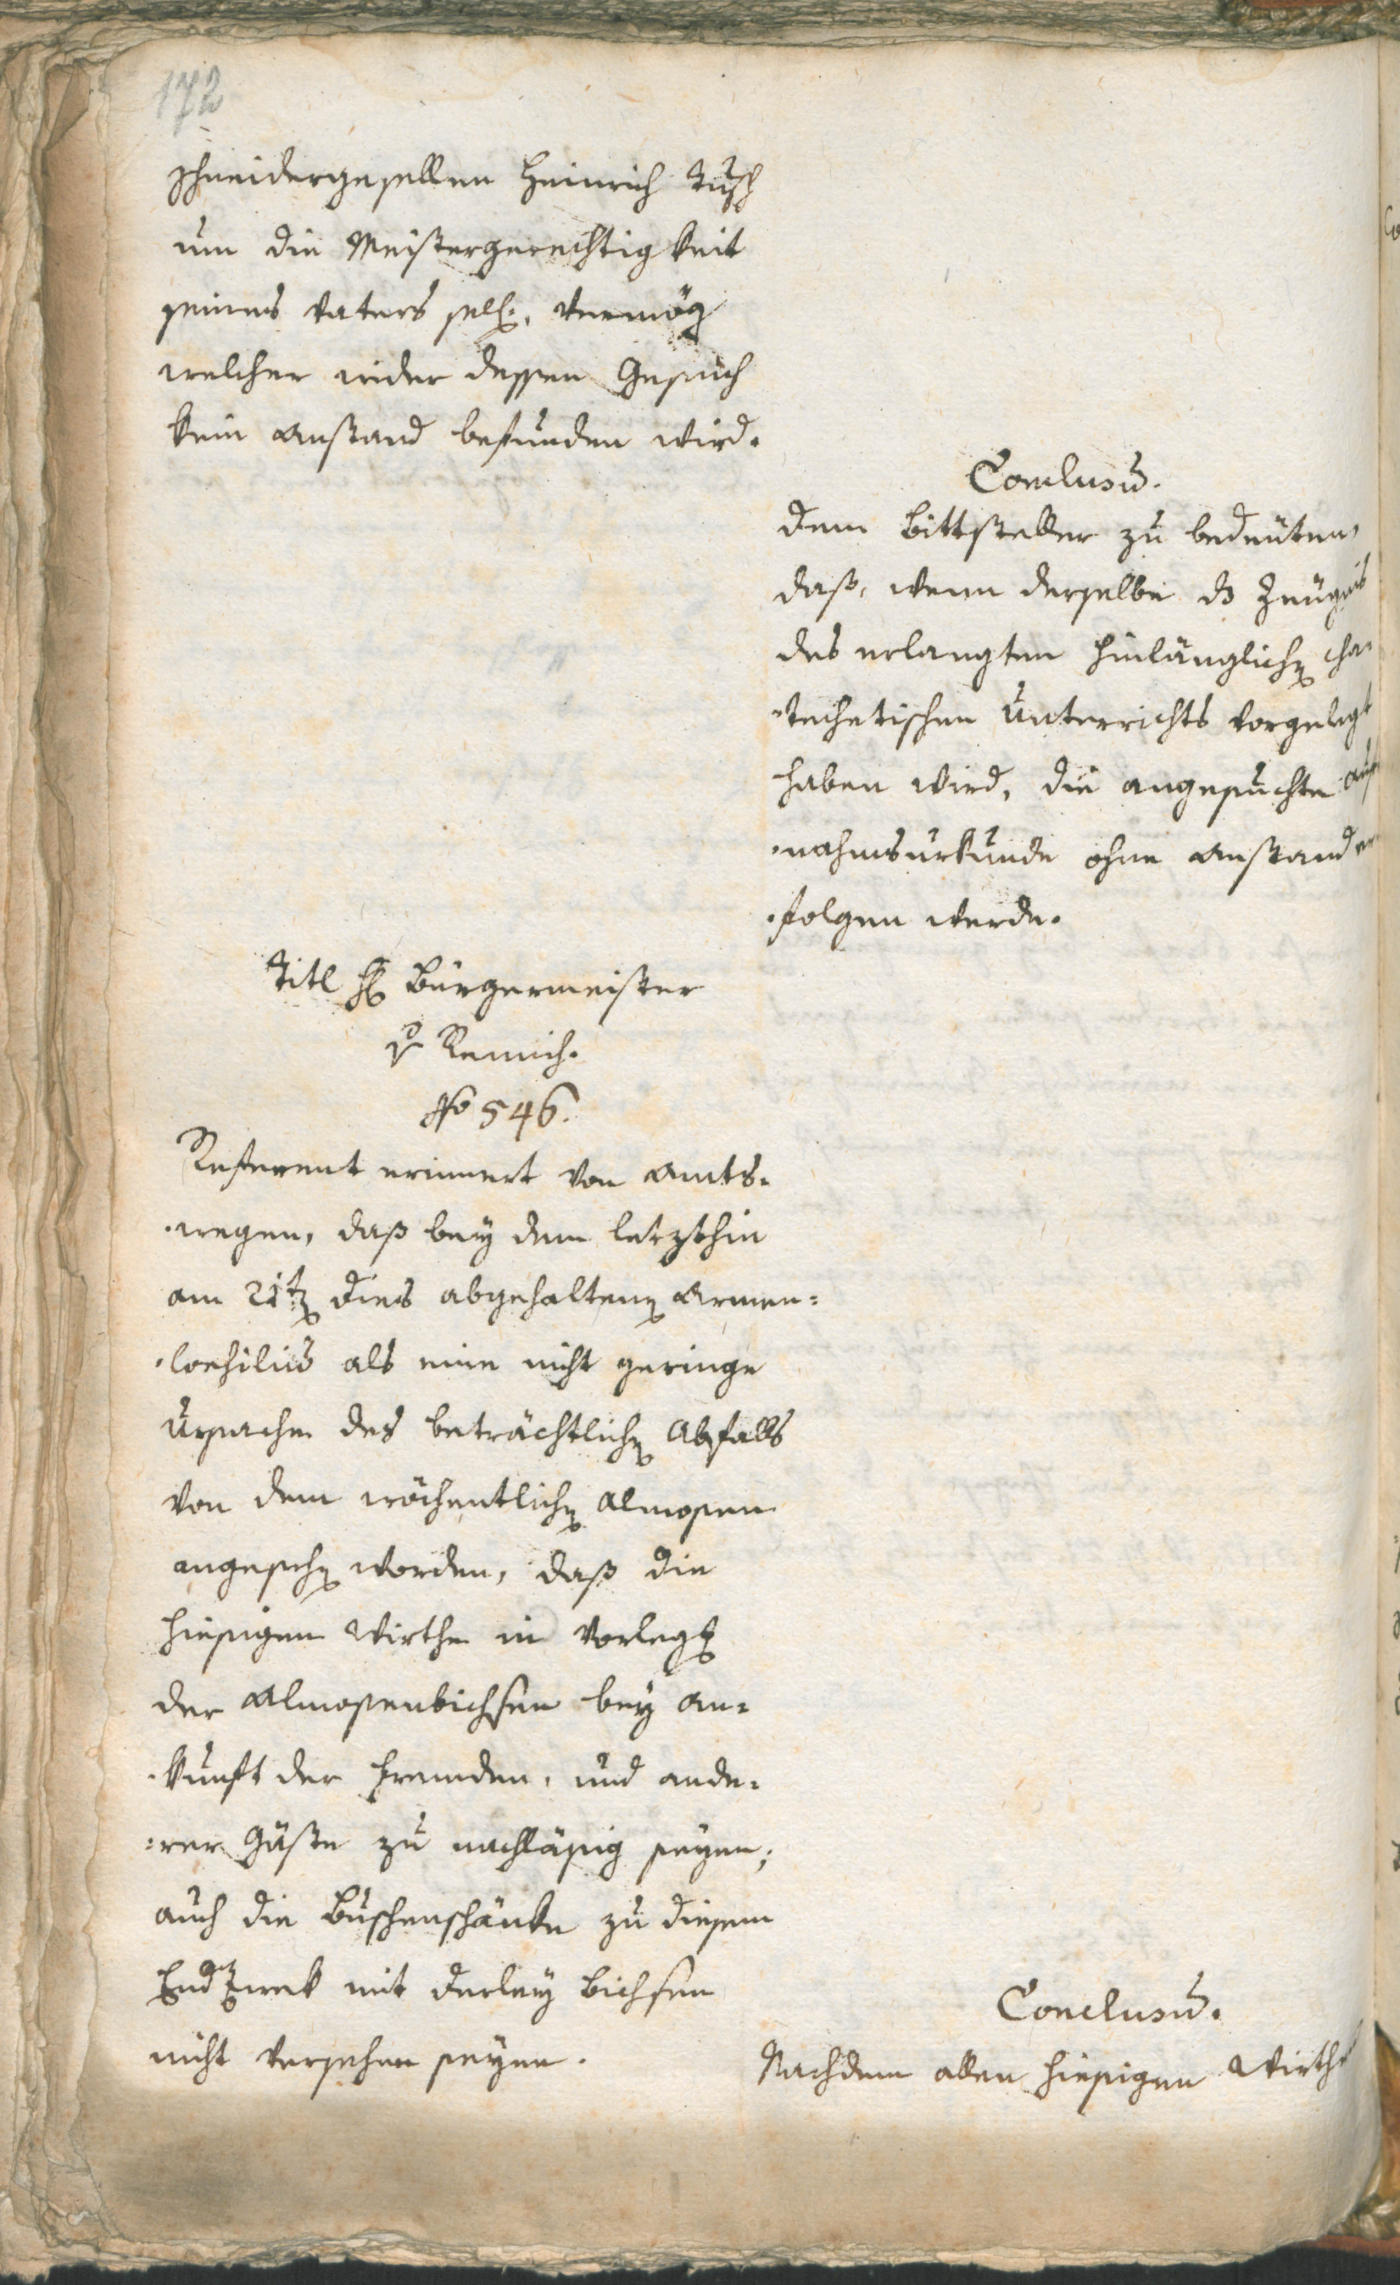 172
Schneidergesellen Heinrich Tusch
um die Meistergerechtigkeit
seines Vaters sel., vermög
welcher wider dessen Gesuch
kein Anstand befunden wird.
Conclusum.
Dem Bittsteller zu bedeuten,
daß, wenn derselbe ds Zeugnis
des erlangten hinlänglichen cha-
-techetischen Unterrichts vorgelegt
haben wird, die angesuchte Auf
-nahmsurkunde ohne Anstand er
-folgen werde.
Titl H Bürgermeister
v Remich.
No 546.
Referent erinnert von Amts-
-wegen, daß bey dem letzthin
am 21t dies abgehaltenen Armen-
-Consilium als eine nicht geringe
Ursache des beträchtlichen Abfalls
von dem wöchentlichen Almosen
angesehen worden, daß die
hiesigen Wirthe in Vorlegung
der Almosenbichsen bey An-
-kunft der Fremden, und ande-
-rer Gäste zu nachläsig seyen;
auch die Buschenschänke zu diesem
EndZwek mit derley Bichsen
nicht versehen seyen.
Conclusum.
Nachdem allen hiesigen Wirthe